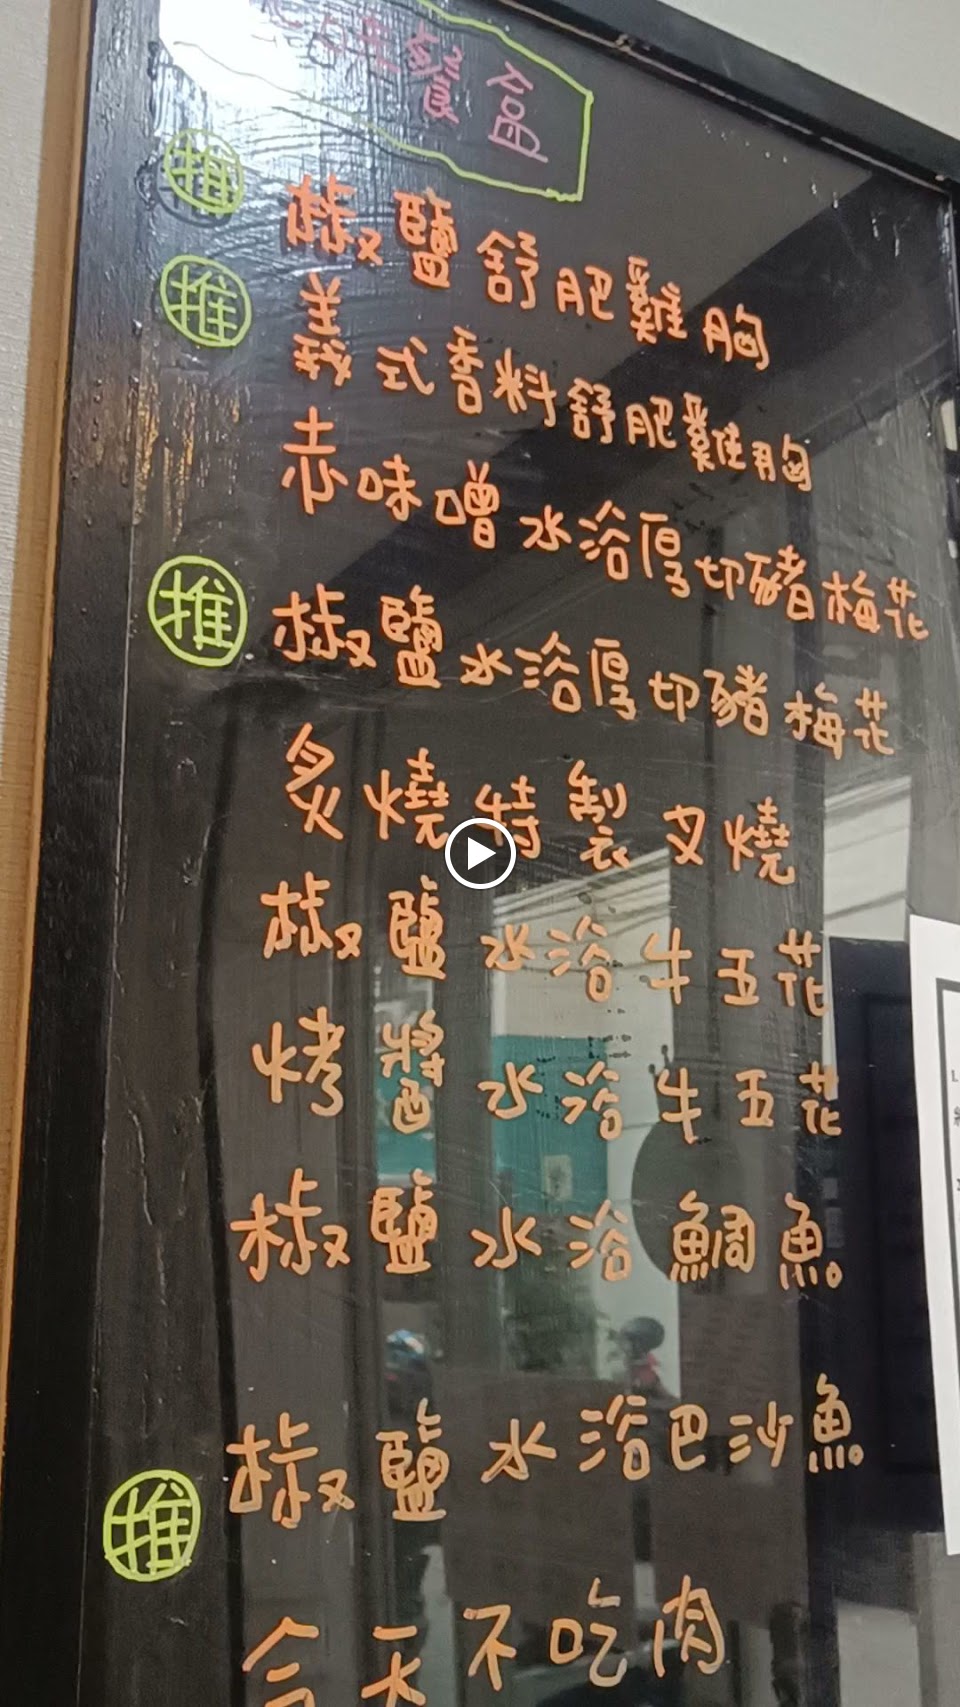 餐盒
推 椒鹽舒肥雞胸
推 義式香料舒肥雞胸
赤味噌水浴厚切豬梅花
推 椒鹽水浴厚切豬梅花
炙燒特製叉燒
椒鹽水浴牛五花
烤醬水浴牛五花
椒鹽水浴鯛魚
椒鹽水浴巴沙魚
推 今天不吃肉